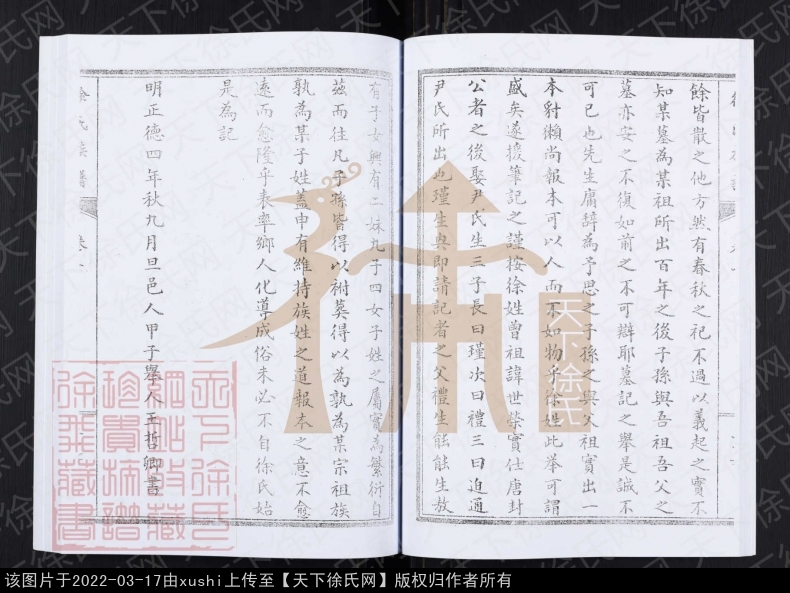 餘皆散之他方然有春秋之祀不過以義起之實不
知某墓為某祖所出百年之後子孫與吾祖吾父之
墓亦安之不復如前之不可辯耶墓記之舉是誠不
可已也先生庸辭為予思之子孫之與父祖實出一
本豺獺尚報本可以人而不如物乎徐姓此举可謂
盛矣遂援筆記之謹按徐姓曾祖諱世榮實仕唐封
公者之後娶尹氏生三子長曰瑾次曰禮三曰迫通
尹氏所出也瑾生與即請記者之父禮生能能生敖
有子女興有二妹九子四女子姓之属實為繁衍自
茲而往凡子孫皆得以祔葬得以為孰為某宗祖族
孰為某子姓蓋申有維持族姓之道報本之意不愈
遠而愈隆乎表率鄉人化導成俗未必不自徐氏始
是為記
明正德四年秋九月旦邑人甲子舉人王哲卿書
徐氏族譜
卷一
天下徐氏
天下徐氏网
珍貴族譜
徐氏藏書
该图片于2022-03-17由xushi上传至【天下徐氏网】版权归作者所有